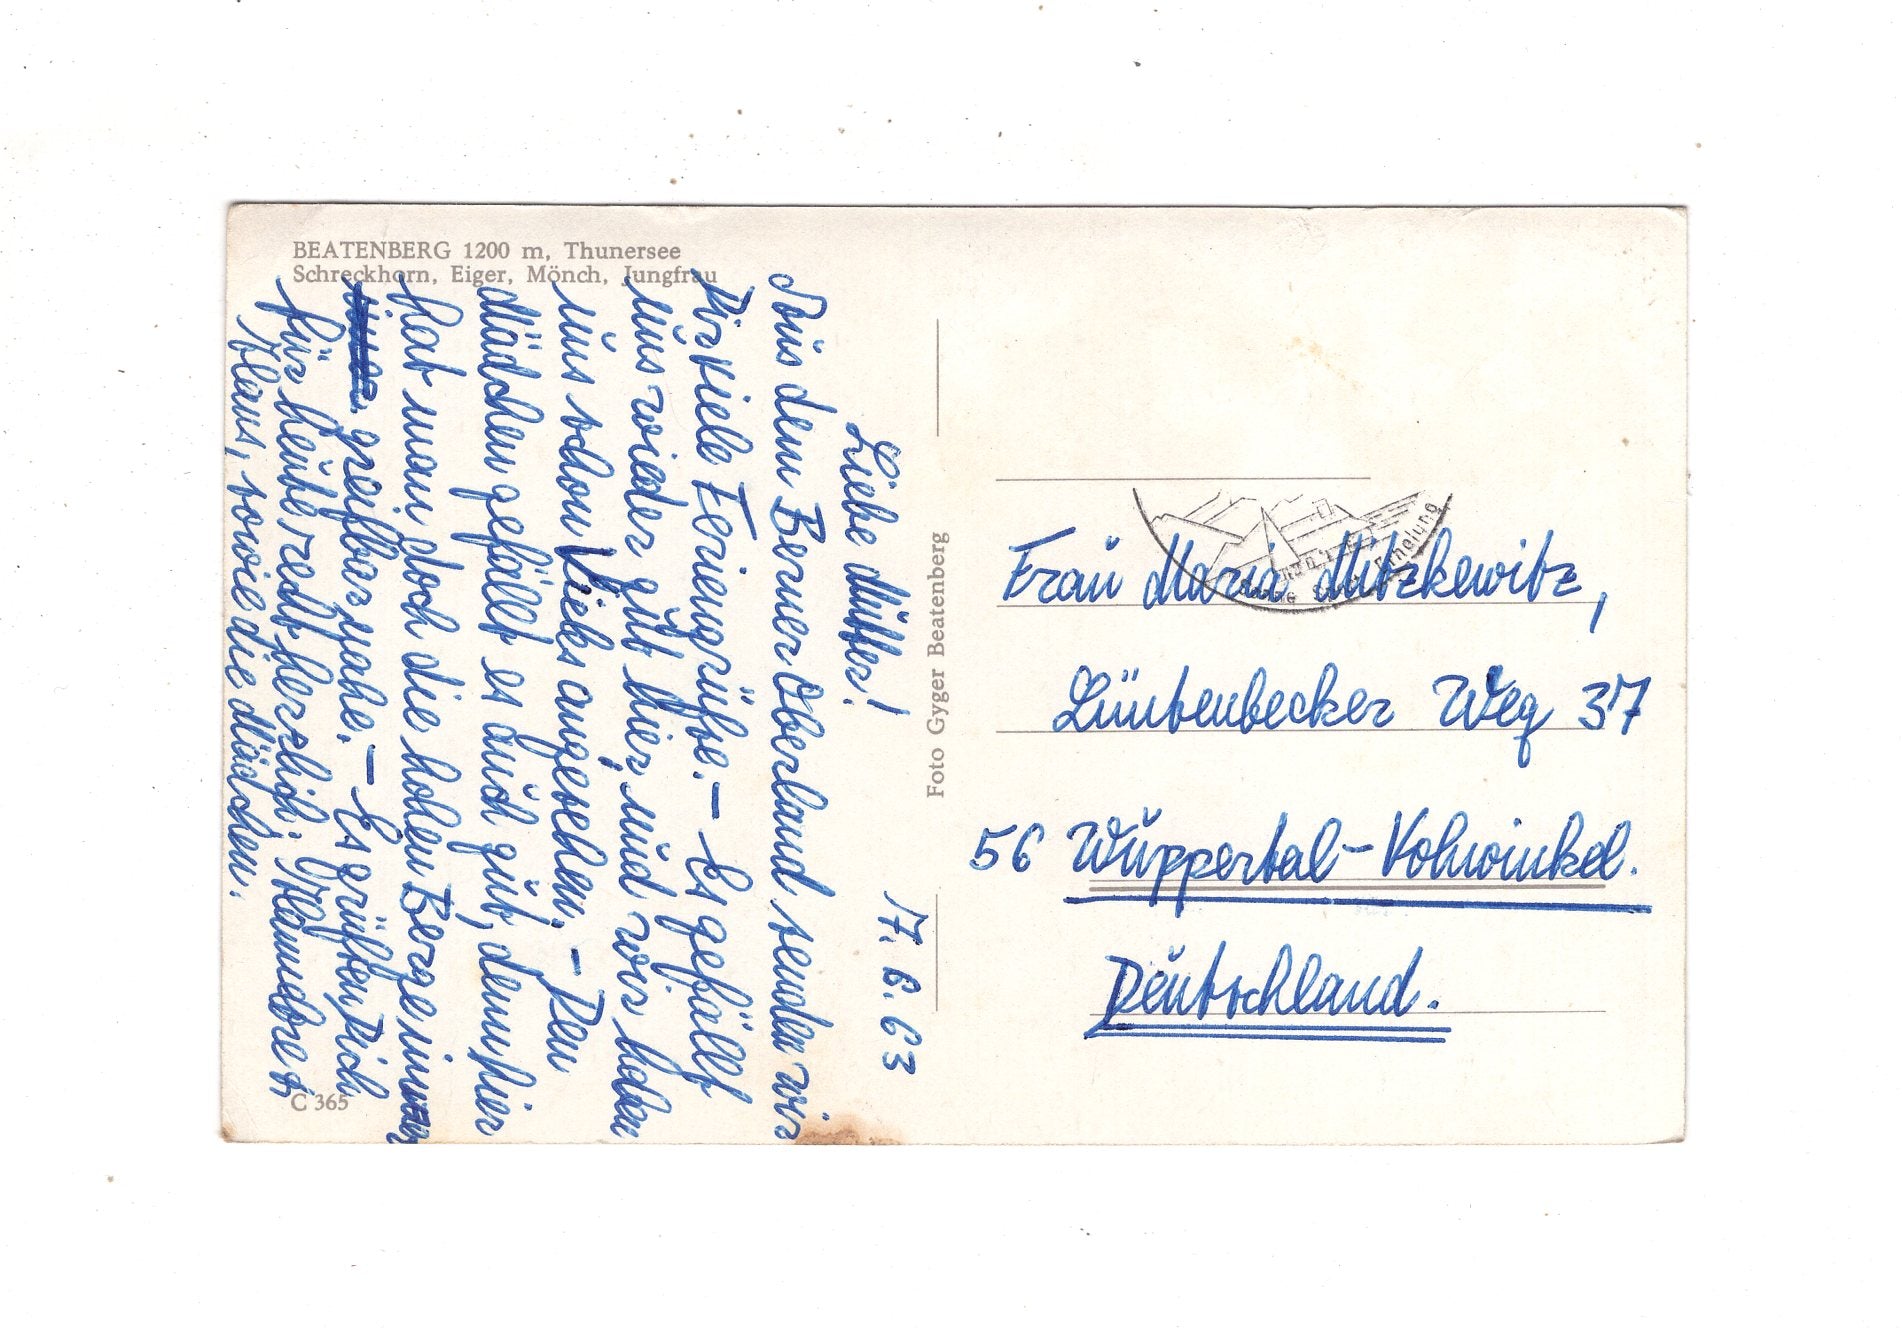 BEATENBERG 1200 m, Thunersee
Schreckhorn, Eiger, Mönch, Jungfrau
17. 6. 63
Liebe Mutter!
Aus dem Berner Oberland senden wir
Dir viele Feriengrüße. – Es gefällt
uns wieder gut hier, und wir haben
uns schon Vieles angesehen. – Den
Mädchen gefällt es auch gut, denn hier
hat man doch die hohen Berge immer
greifbar nahe. – Es grüßen Dich
für heute recht herzlich: Hannelore &
Klaus, sowie die Mädchen.
C 365
Foto Gyger Beatenberg
Frau Maria Mutzkewitz,
Lüntenbecker Weg 37
56 Wuppertal-Vohwinkel.
Deutschland.
Sonne Erholung